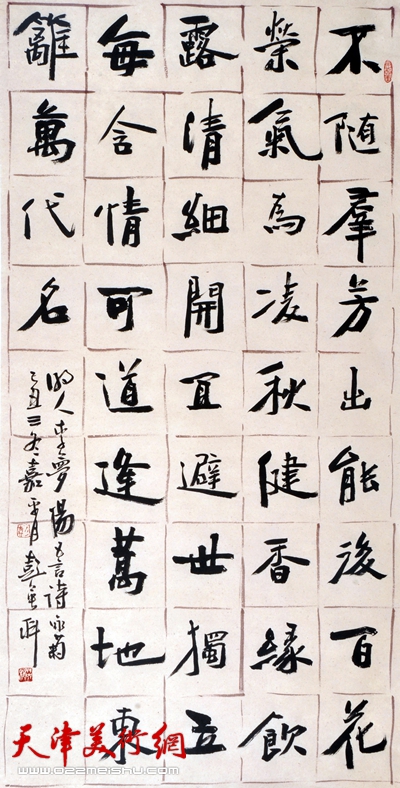 不随羣芳出能後百花
榮氣為凌秋健香緣飲
露清細開宜避世獨立
每含情可道逢萬地東
籬萬代名
明人李夢陽五言詩詠菊
己丑三冬嘉平月彭
天津美術網
www.022meishu.com